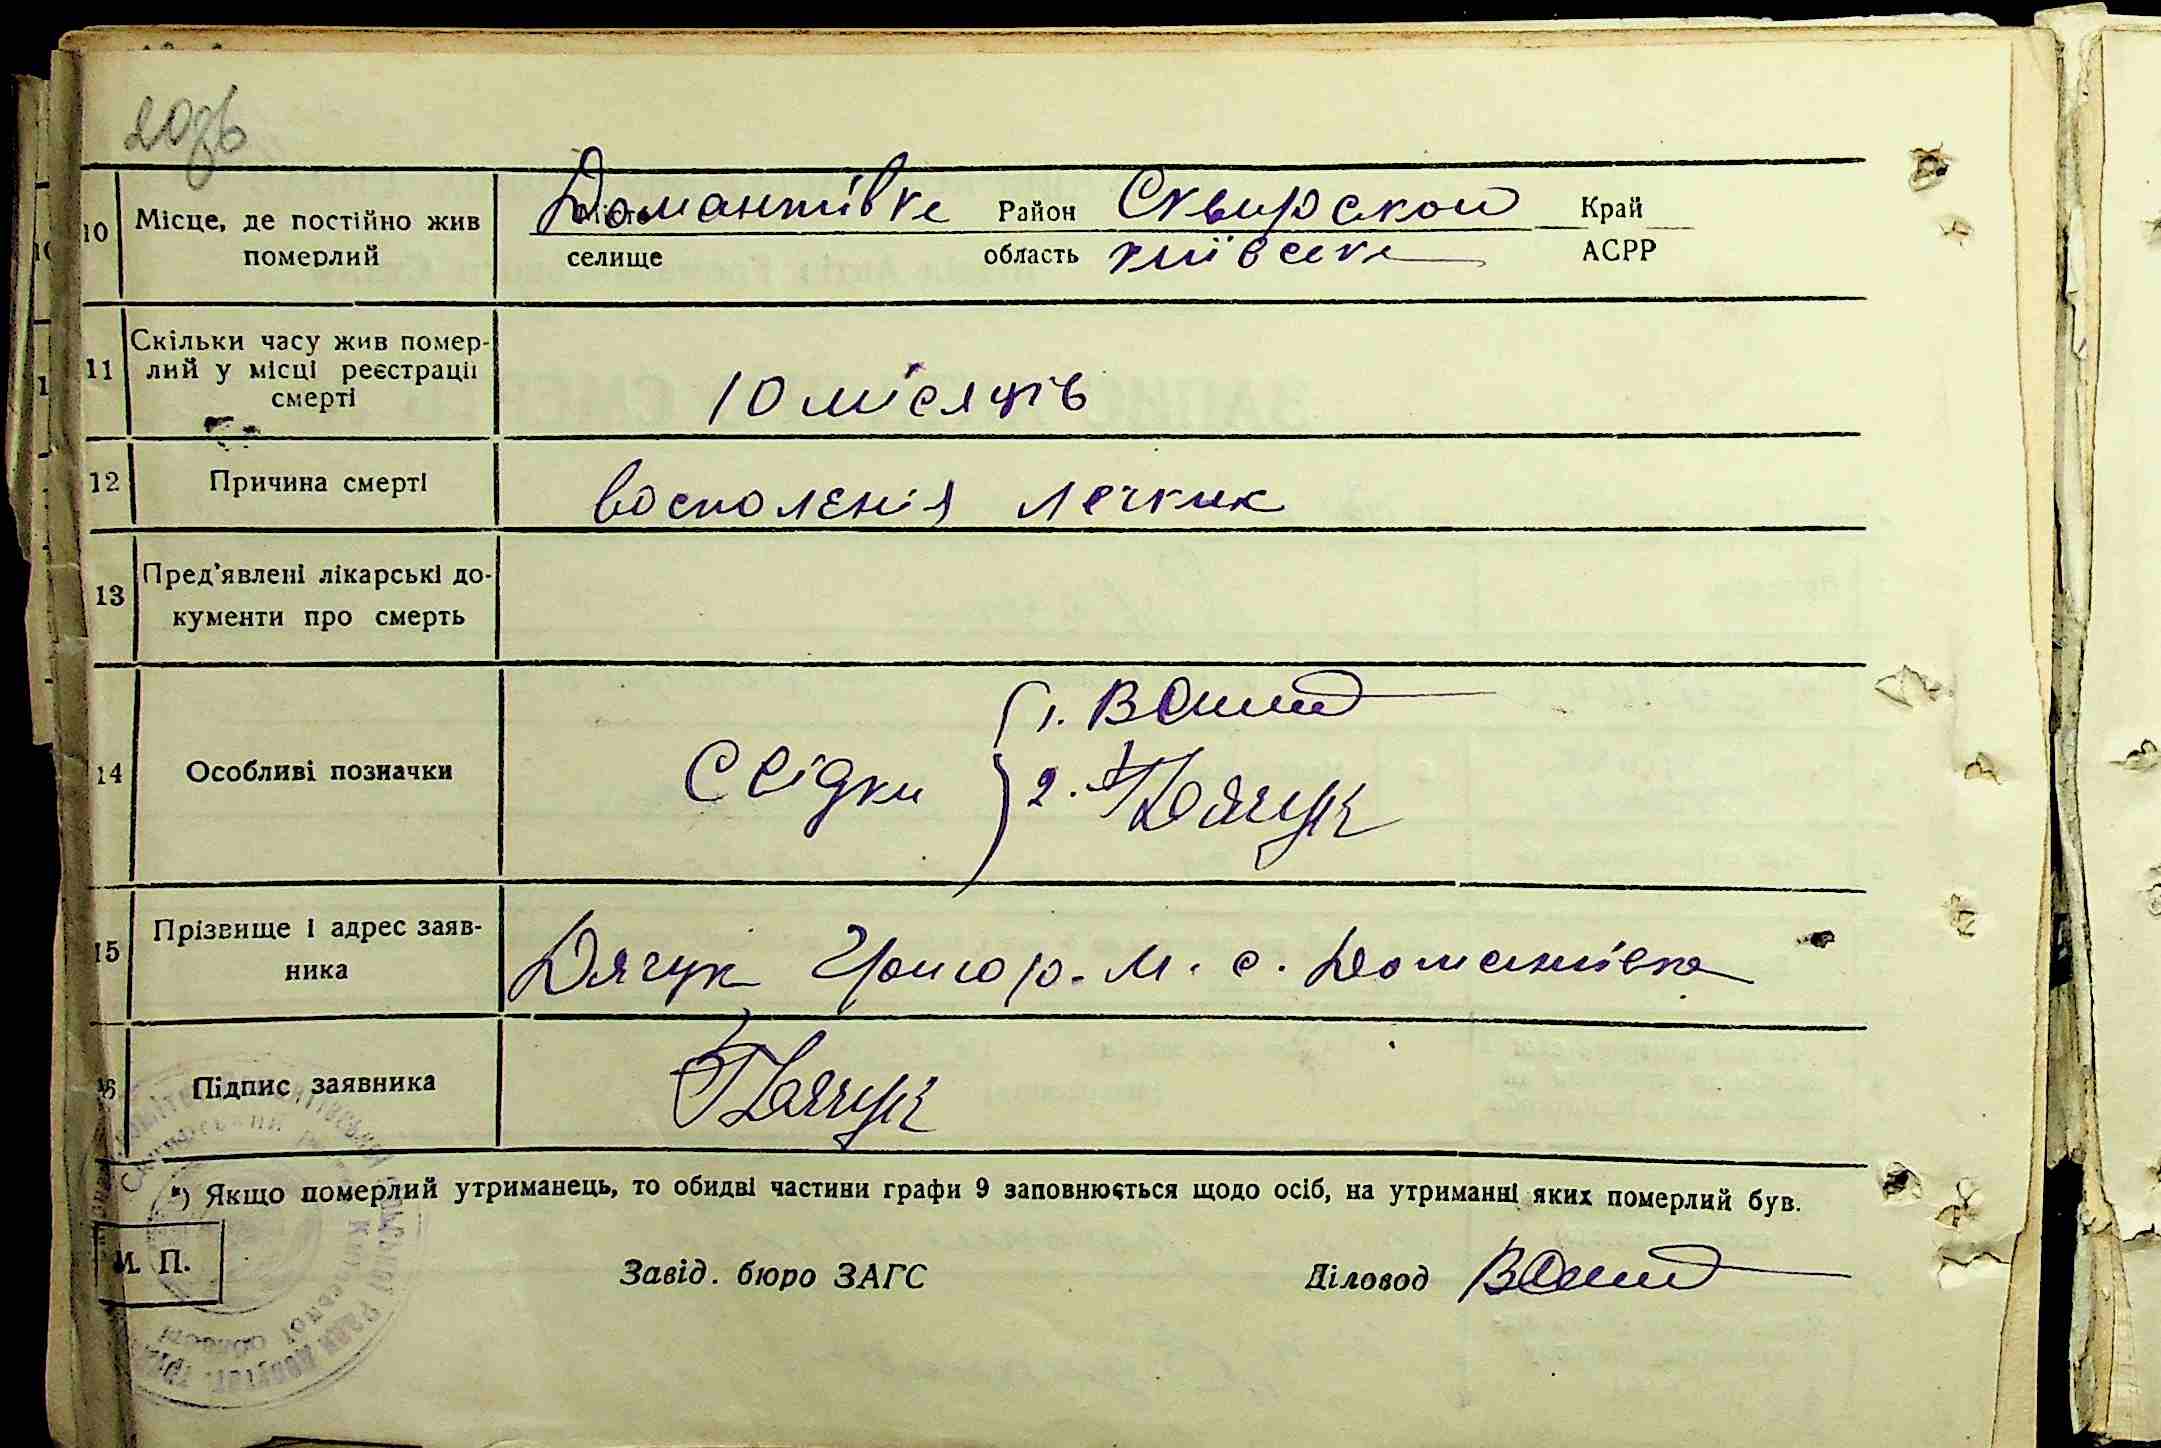 10 Місце, де постійно жив Місто Домантівке Район Сквирской Край
померлий селище область київске АСРР
Скільки часу жив помер-
11 лий у місці реєстрації 10 місяців
смерті
12 Причина смерті восполенія легких
Пред'явлені лікарські до-
13
кументи про смерть
1. В
14 Особливі позначки Свідки 2. ГДячук
15 Прізвище і адрес заяв- Дячук Григор. М. с. Домантівка
ника
16 Підпис заявника ГДячук
*) Якщо померлий утриманець, то обидві частини графи 9 заповнюється щодо осіб, на утриманні яких померлий був.
М. П. Завід. бюро ЗАГС Діловод